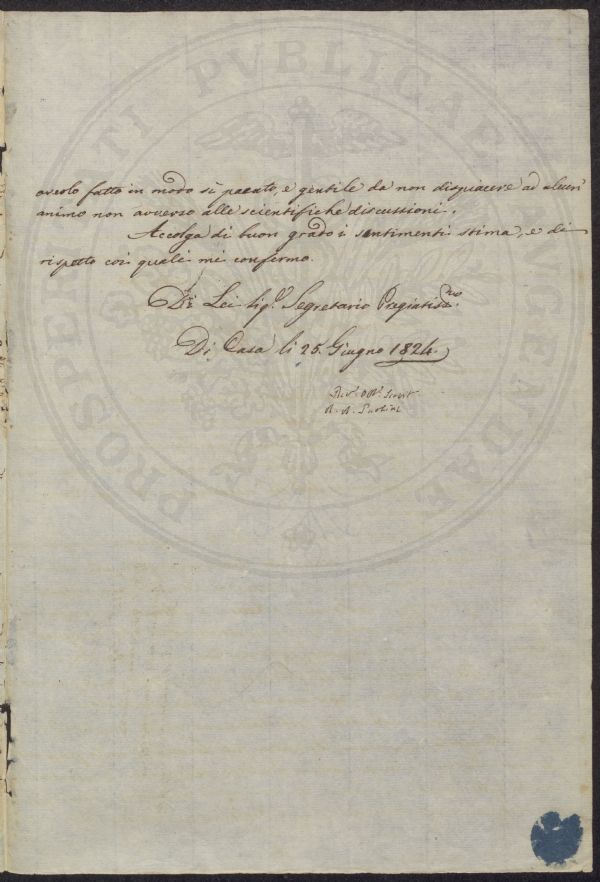 averlo fatto in modo sì pacato, e gentile da non dispiacere ad alcun
animo non avverso alle scientifiche discussioni.
Accolga di buon grado i sentimenti stima, e di
rispetto coi quali mi confermo.
Di Lei Sig.r Segretario Pregiatis.mo
Di Casa li 25. Giugno 1824.
PROSPERITATI PVBLICAE AVGENDAE